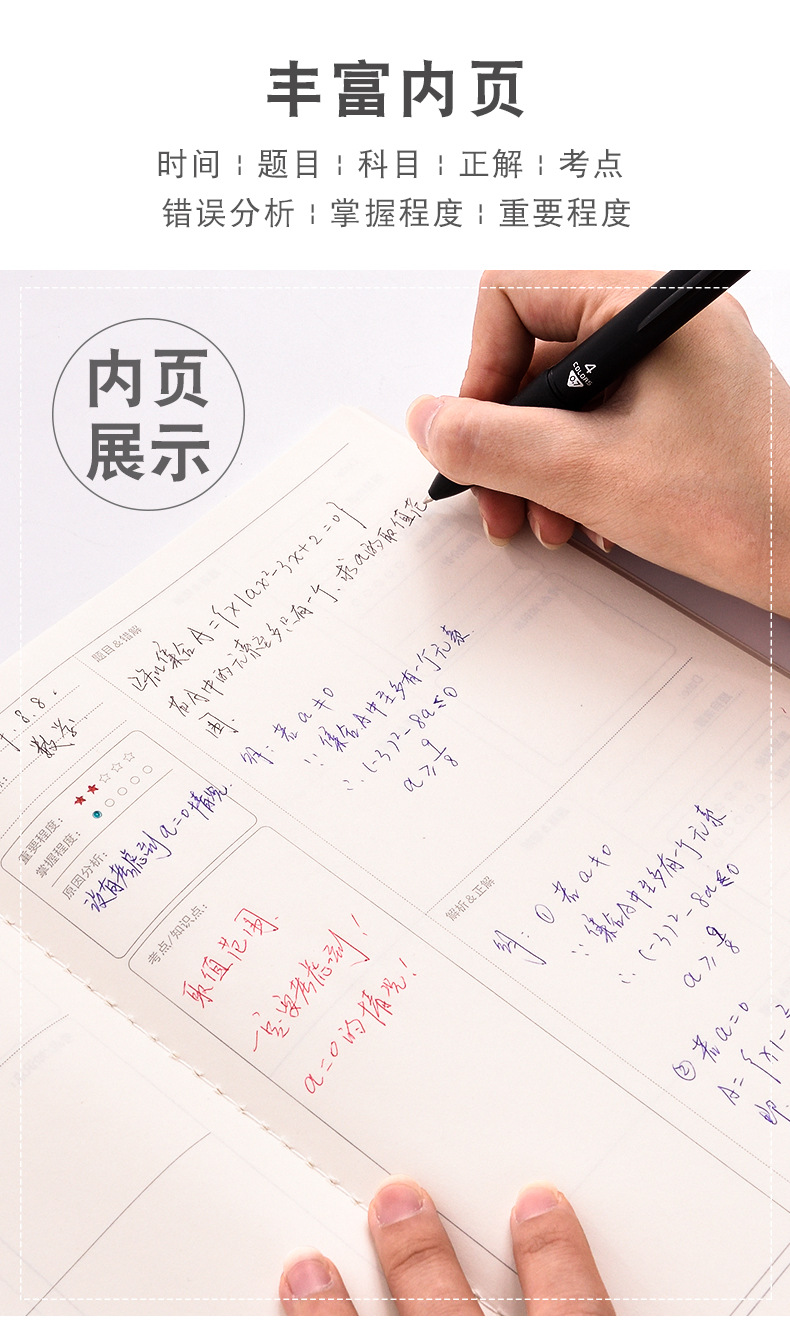 丰富内页
时间 ¦ 题目 ¦ 科目 ¦ 正解 ¦ 考点
错误分析 ¦ 掌握程度 ¦ 重要程度
内页
展示
4
COLORS
题目&错解
已知集合A={x|ax²-3x+2=0}
若A中的元素至多只有一个,求a的取值范
围.
解: 若a≠0
∵ 集合A中至多有一个元素
∴ (-3)²-8a≤0
a≥9/8
8.8.
数学
重要程度: ★★☆☆☆
掌握程度:
原因分析:
没有考虑到a=0情况.
考点/知识点:
取值范围.
一定要考虑到!
a=0的情况!
解析&正解
解: ① 若a≠0
∵ 集合A中至多有一个元素
∴ (-3)²-8a≤0
a≥9/8
② 若a=0
A={x|
即